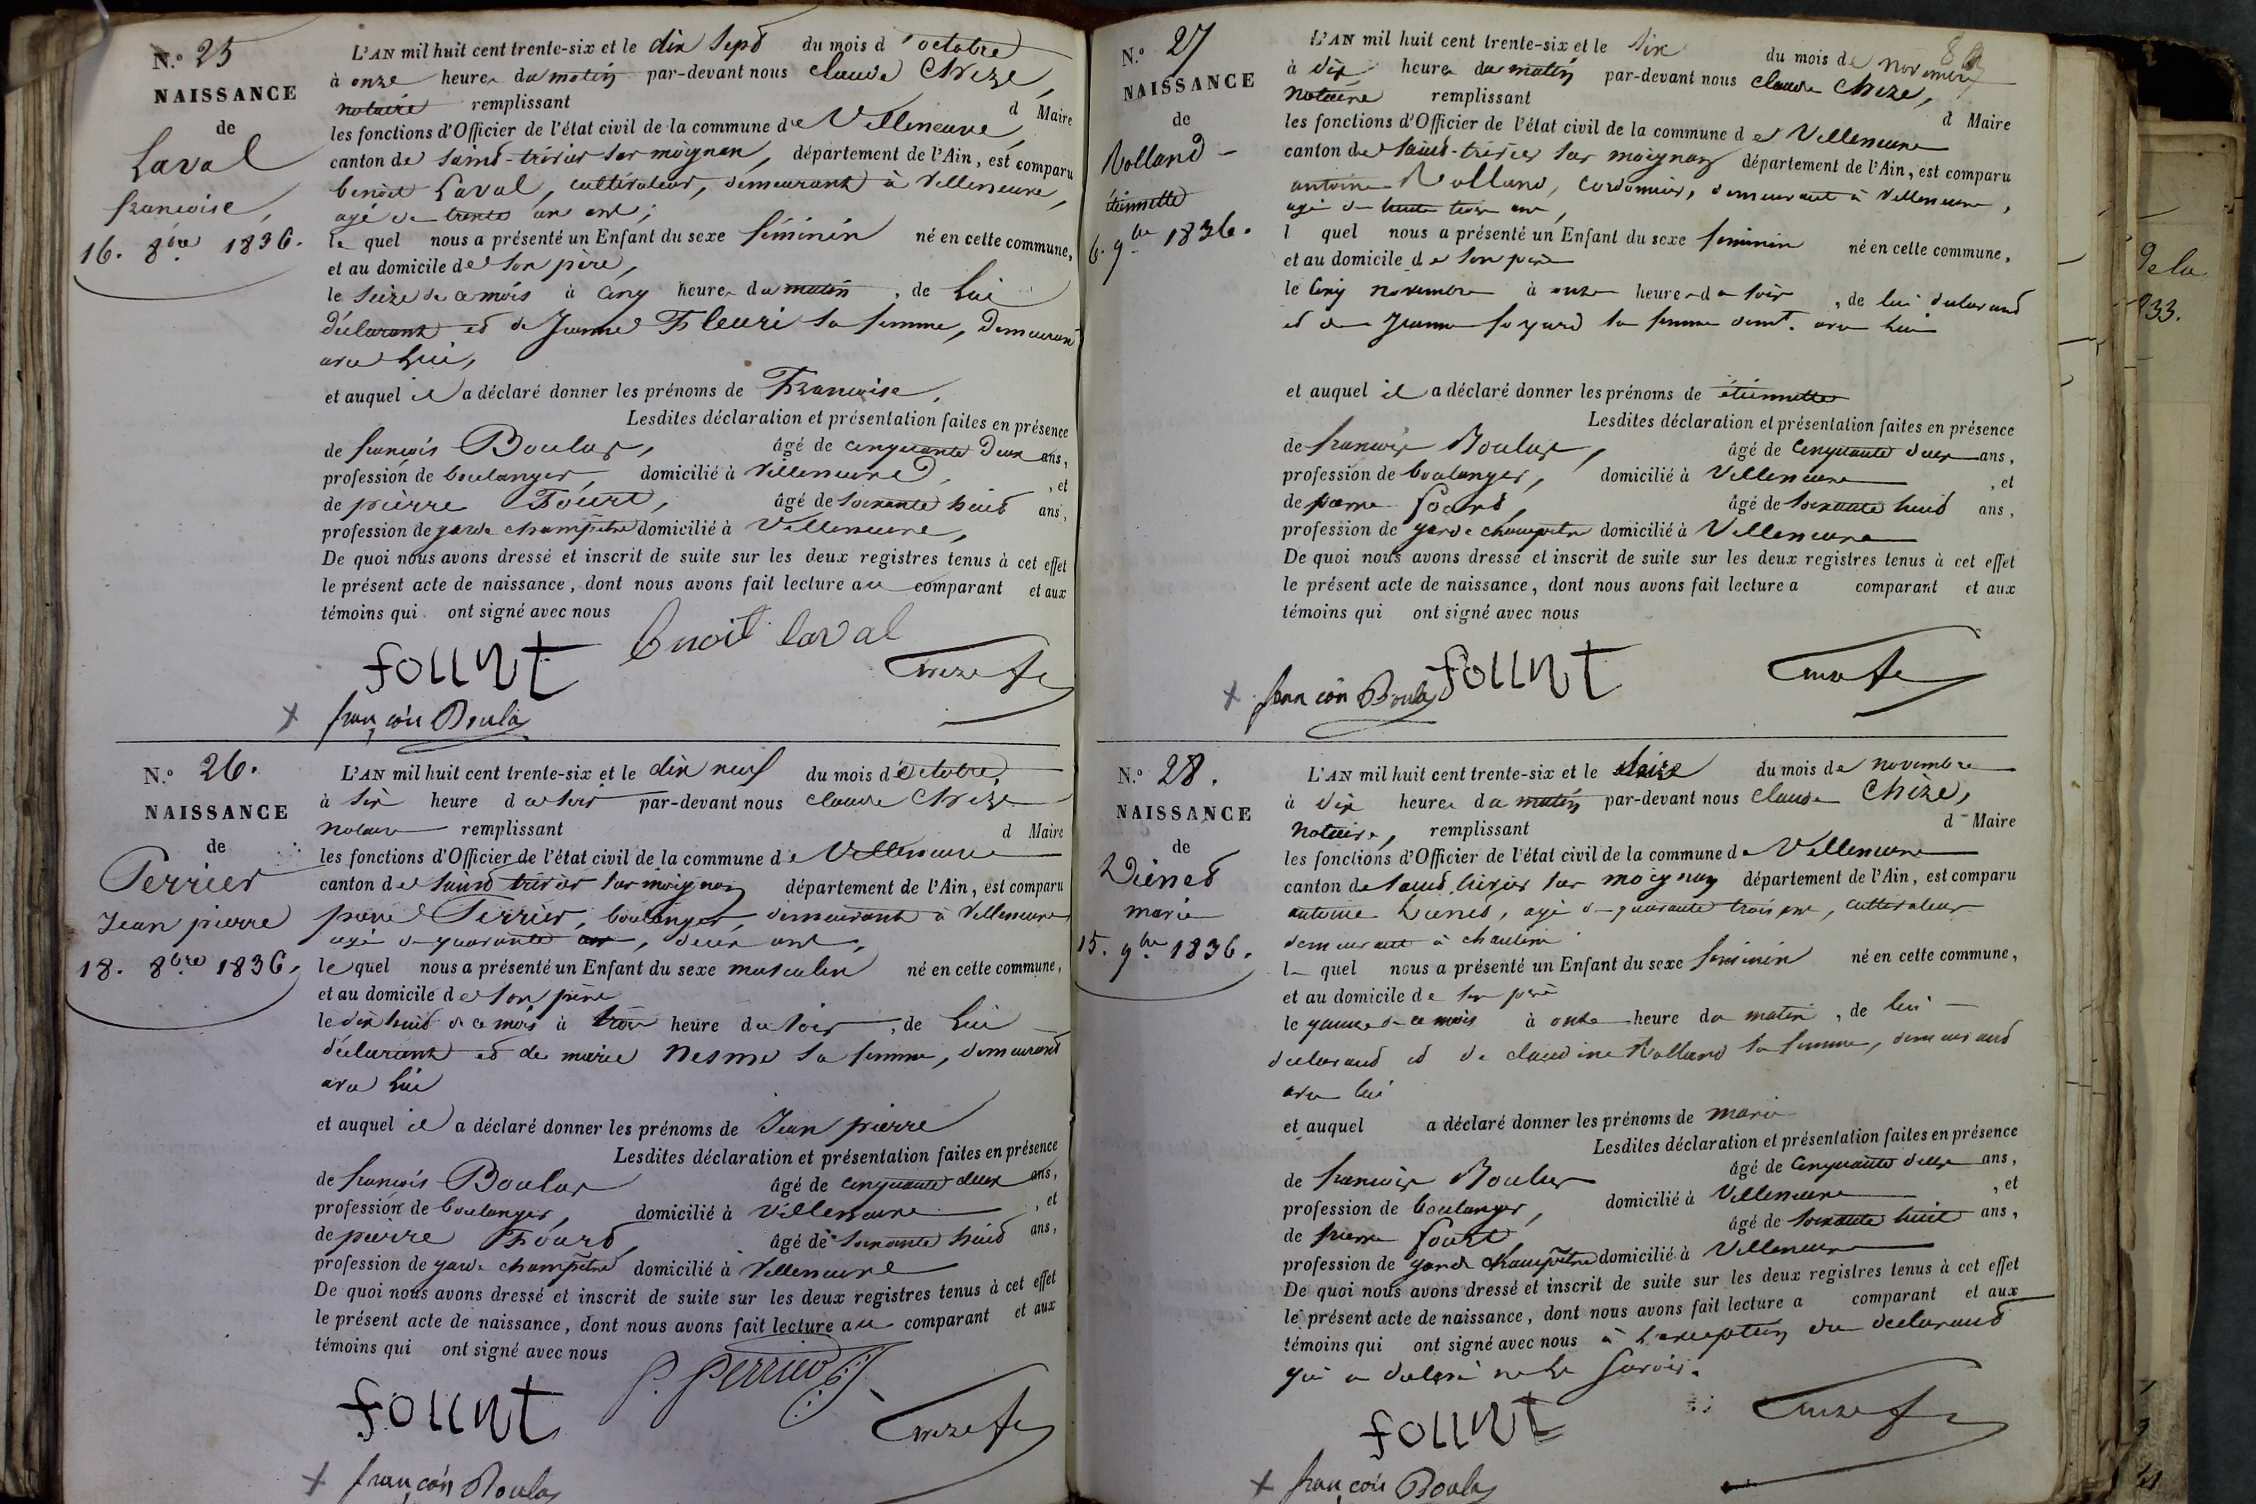 N.° 25
NAISSANCE
de
Laval
francoise,
16. 8bre 1836.
L'AN mil huit cent trente-six et le dix sept du mois d'octobre
à onze heures du matin par-devant nous claude Chize,
notaire remplissant d Maire
les fonctions d'Officier de l'état civil de la commune de Villeneuve,
canton de saint-trivier sur moignan, département de l'Ain, est comparu
benoit Laval, cultivateur, demeurant à villeneuve,
agé de trente un ans;
le quel nous a présenté un Enfant du sexe féminin né en cette commune,
et au domicile de son père,
le seize de ce mois à cinq heures du matin, de lui
déclarant et de Jeanne Fleuri sa femme, demeurant
avec lui,
et auquel il a déclaré donner les prénoms de Francoise,
Lesdites déclaration et présentation faites en présence
de francois Boulas, âgé de cinquante deux ans,
profession de boulanger, domicilié à villeneuve, et
de pierre Fourt, âgé de soixante huit ans,
profession de garde champêtre domicilié à Villeneuve,
De quoi nous avons dressé et inscrit de suite sur les deux registres tenus à cet effet
le présent acte de naissance, dont nous avons fait lecture au comparant et aux
témoins qui ont signé avec nous
benoit laval
fount
françois Boulas
N.° 26.
NAISSANCE
de
Perrier
Jean pierre
18. 8bre 1836.
L'AN mil huit cent trente-six et le dix neuf du mois d'octobre,
à six heure du soir par-devant nous claude Chize
notaire remplissant d Maire
les fonctions d'Officier de l'état civil de la commune de Villeneuve
canton de saint trivier sur moignan département de l'Ain, est comparu
pierre Perrier, boulanger, demeurant à villeneuve
agé de quarante deux ans,
le quel nous a présenté un Enfant du sexe masculin né en cette commune,
et au domicile de son père
le dix huit de ce mois à trois heure du soir, de lui
déclarant et de marie Nesme sa femme, demeurant
avec lui
et auquel il a déclaré donner les prénoms de Jean pierre
Lesdites déclaration et présentation faites en présence
de francois Boulas âgé de cinquante deux ans,
profession de boulanger, domicilié à villeneuve, et
de pierre Fourt, âgé de soixante huit ans,
profession de garde champêtre domicilié à Villeneuve
De quoi nous avons dressé et inscrit de suite sur les deux registres tenus à cet effet
le présent acte de naissance, dont nous avons fait lecture au comparant et aux
témoins qui ont signé avec nous
P. Perrier
fount
françois Boulas
N.° 27
NAISSANCE
de
Rolland
étiennette
6. 9bre 1836.
L'AN mil huit cent trente-six et le six du mois de novembre
à dix heures du matin par-devant nous claude Chize,
notaire remplissant d Maire
les fonctions d'Officier de l'état civil de la commune de Villeneuve
canton de saint-trivier sur moignan département de l'Ain, est comparu
antoine Rolland, cordonnier, demeurant à villeneuve,
agé de trente trois ans,
l quel nous a présenté un Enfant du sexe féminin né en cette commune,
et au domicile de son père
le cinq novembre à onze heures du soir, de lui déclarant
et de Jeanne foyard sa femme demt. avec lui
et auquel il a déclaré donner les prénoms de étiennette
Lesdites déclaration et présentation faites en présence
de francois Boulas, âgé de cinquante deux ans,
profession de boulanger, domicilié à Villeneuve, et
de pierre fourt, âgé de soixante huit ans,
profession de garde champêtre domicilié à Villeneuve
De quoi nous avons dressé et inscrit de suite sur les deux registres tenus à cet effet
le présent acte de naissance, dont nous avons fait lecture a comparant et aux
témoins qui ont signé avec nous
fount
françois Boulas
N.° 28.
NAISSANCE
de
Dienet
marie
15. 9bre 1836.
L'AN mil huit cent trente-six et le seize du mois de novembre
à dix heures du matin par-devant nous claude Chize,
notaire, remplissant d Maire
les fonctions d'Officier de l'état civil de la commune de Villeneuve
canton de saint trivier sur moignan département de l'Ain, est comparu
antoine Dienet, agé de quarante trois ans, cultivateur
demeurant à
le quel nous a présenté un Enfant du sexe féminin né en cette commune,
et au domicile de son père
le quinze de ce mois à onze heure du matin, de lui
déclarant et de claudine Rolland sa femme, demeurant
avec lui
et auquel a déclaré donner les prénoms de marie
Lesdites déclaration et présentation faites en présence
de francois Boulas âgé de cinquante deux ans,
profession de boulanger, domicilié à Villeneuve, et
de pierre fourt âgé de soixante huit ans,
profession de garde champêtre domicilié à Villeneuve
De quoi nous avons dressé et inscrit de suite sur les deux registres tenus à cet effet
le présent acte de naissance, dont nous avons fait lecture a comparant et aux
témoins qui ont signé avec nous à l'exception du déclarant
qui a déclaré ne le savoir.
fount
françois Boulas
De la
233.